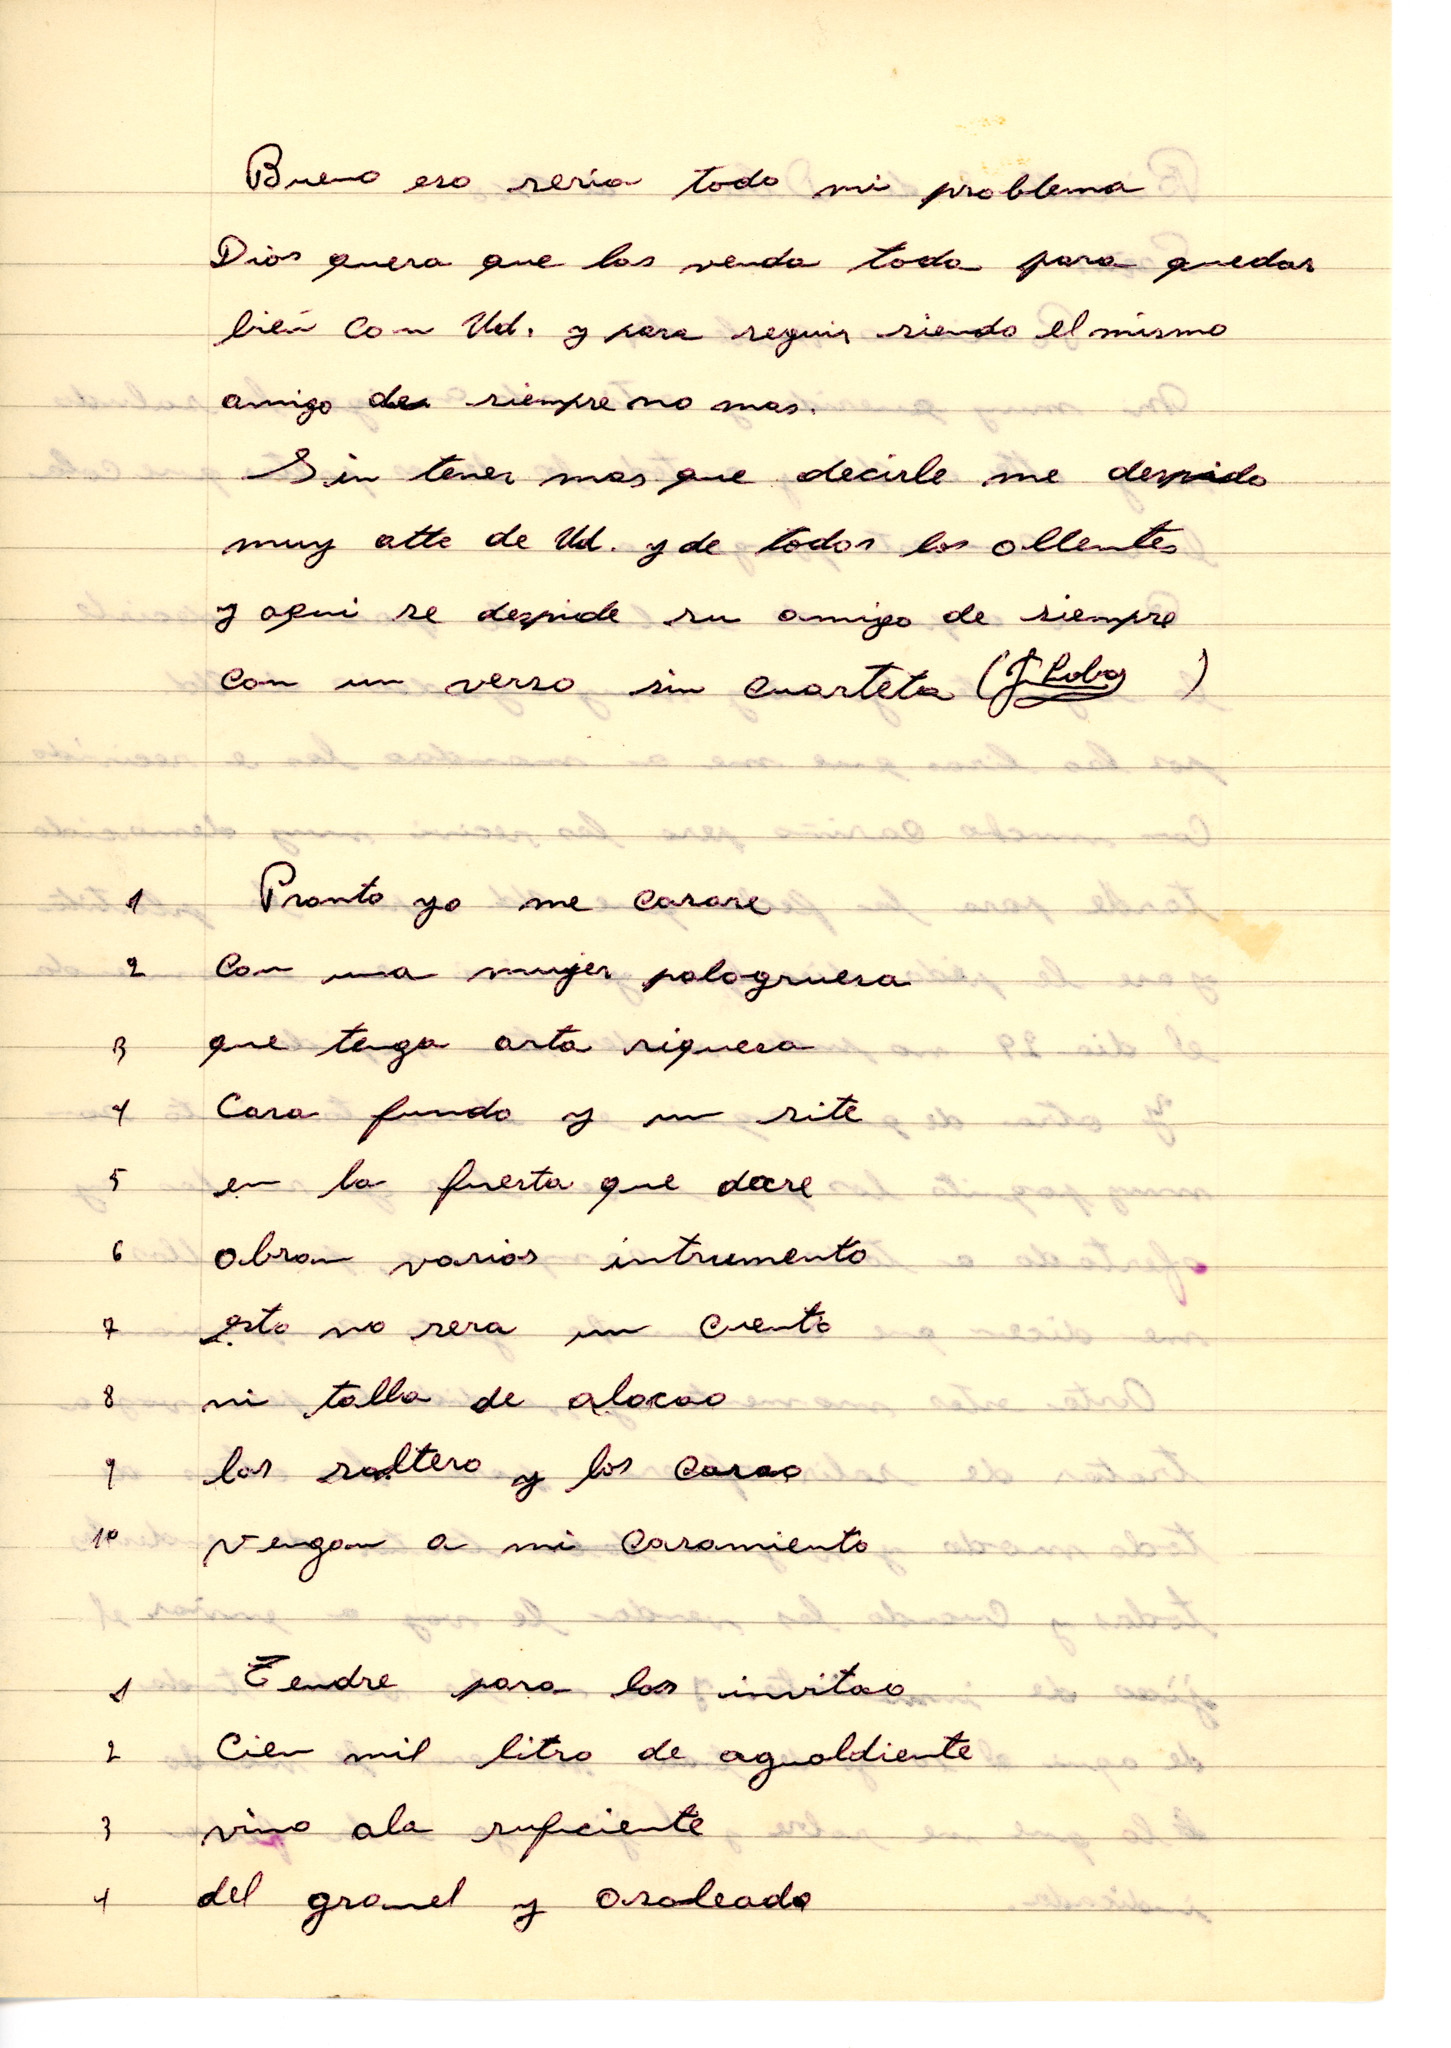 Bueno eso seria todo mi problema
Dios quera que las venda toda para quedar
bien con Ud. y para seguir siendo el mismo
amigo de siempre no mas.
Sin tener mas que decirle me despido
muy atte de Ud. y de todos los ollentes
y aqui se despide su amigo de siempre
con un verso sin cuarteta (J Lobos)
1 Pronto yo me casare
2 con una mujer palogruesa
3 que tenga arta riquesa
4 Casa fundo y un site
5 en la fiesta que dare
6 abran varios intrumento
7 esto no sera un cuento
8 ni talla de alocao
9 los soltero y los casao
10 vengan a mi casamiento
1 Tendre para los invitao
2 Cien mil litro de agualdiente
3 vino ala suficiente
4 del granel y asoleado